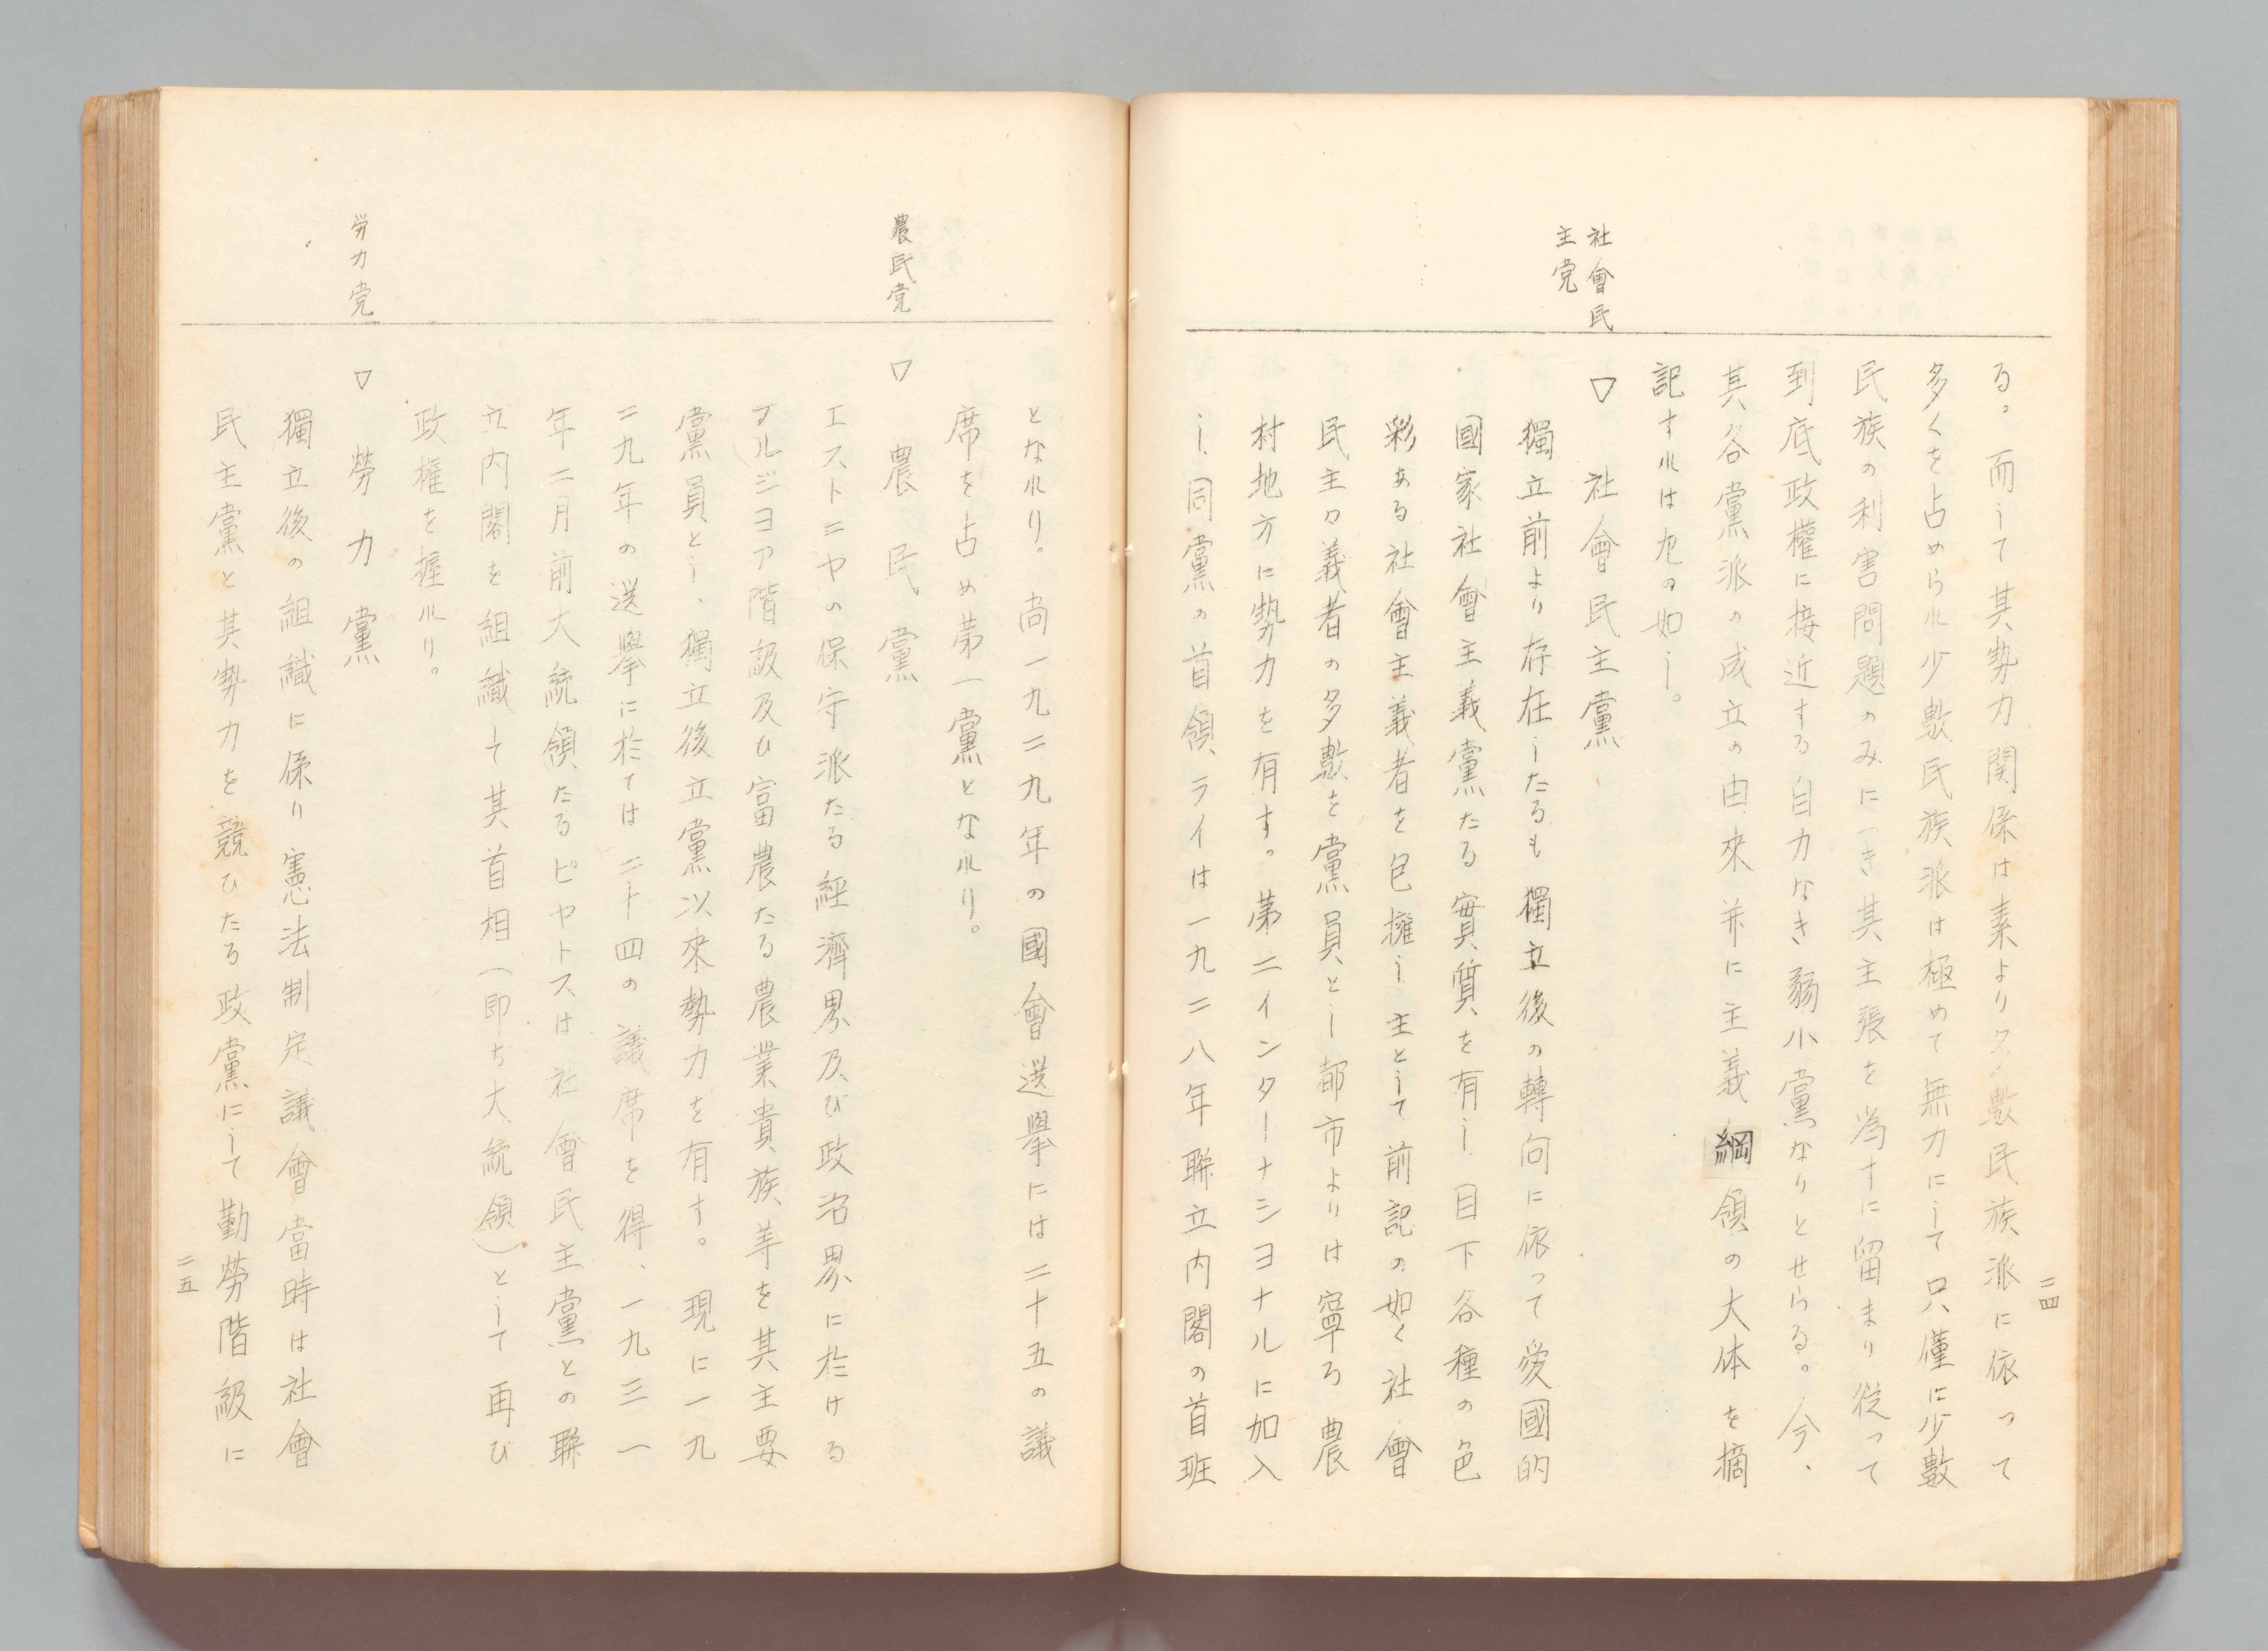 二四
る。而して其勢力関係は素より多數民族派に依って
多くを占められ少數民族派は極めて無力にして只僅に少數
民族の利害問題のみにつき其主張を為すに留まり従って
到底政權に接近する自力なき弱小黨なりとせらる。今、
其各黨派の成立の由來并に主義綱領の大体を摘
記すれは左の如し。
社會民
主党
▽ 社會民主黨
獨立前より存在したるも獨立後の轉向に依って愛國的
國家社會主義黨たる實質を有し目下各種の色
彩ある社會主義者を包擁し主として前記の如く社會
民主々義者の多數を黨員とし都市よりは寧ろ農
村地方に勢力を有す。第二インターナシヨナルに加入
し同黨の首領ライは一九二八年聯立内閣の首班
となれり。尚一九二九年の國會選擧には二十五の議
席を占め第一黨となれり。
農民党
▽ 農民黨
エストニヤの保守派たる經濟界及び政治界に於ける
ブルジヨア階級及ひ富農たる農業貴族等を其主要
黨員とし、獨立後立黨以來勢力を有す。現に一九
二九年の選擧に於ては二十四の議席を得、一九三一
年二月前大統領たるピヤトスは社會民主黨との聯
立内閣を組織して其首相（即ち大統領）として再び
政権を握れり。
労力党
▽ 勞力黨
獨立後の組識に係り憲法制定議會當時は社會
民主黨と其勢力を競ひたる政黨にして勤勞階級に
二五